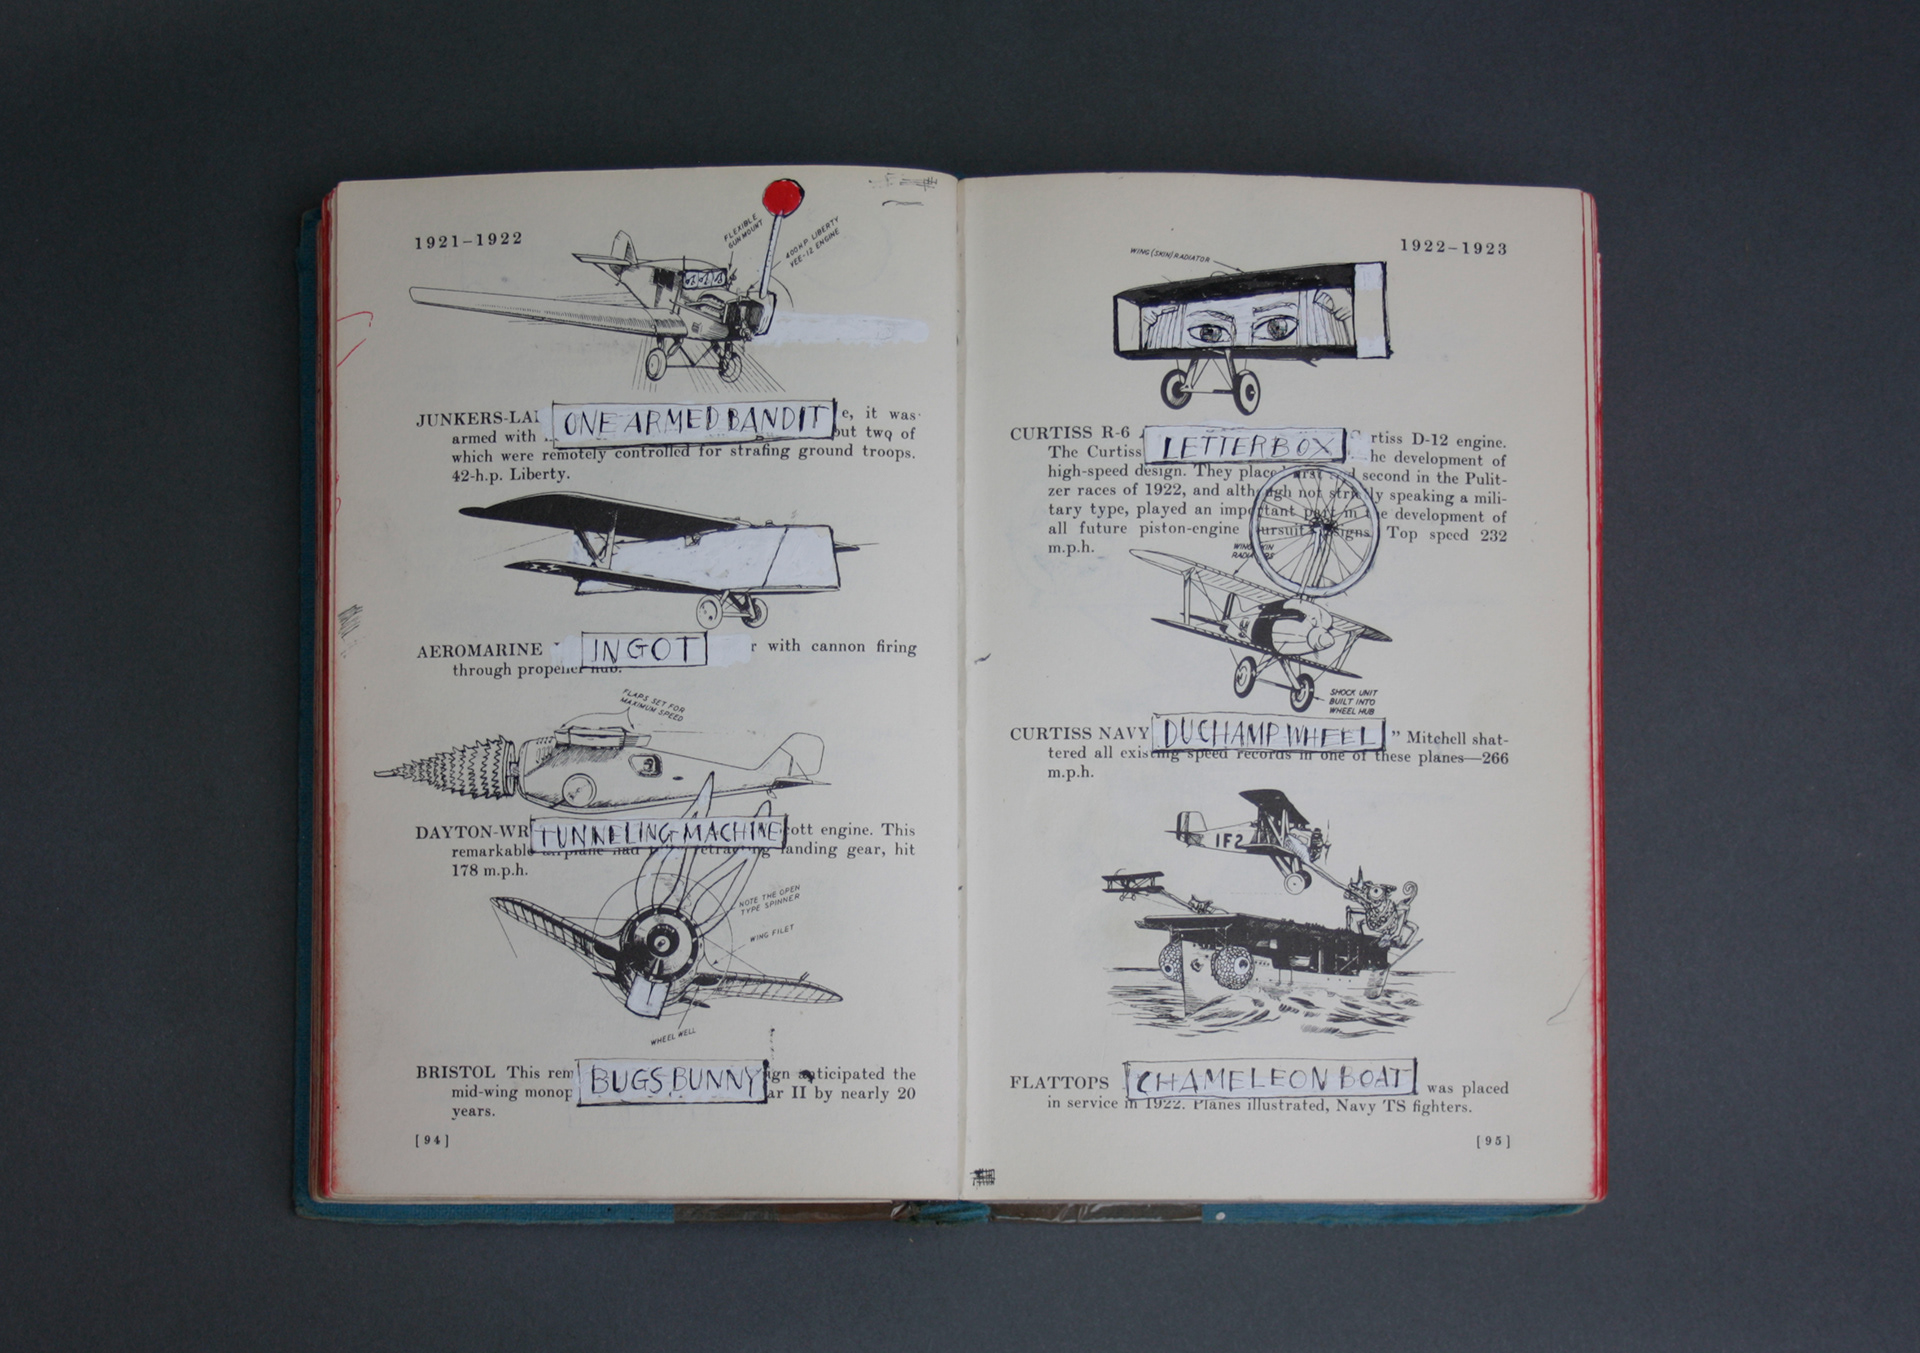 1921–1922
FLEXIBLE
GUN MOUNT
400 H.P. LIBERTY
VEE-12 ENGINE
JUNKERS-LA
ONE ARMED BANDIT
e, it was
armed with
but two of
which were remotely controlled for strafing ground troops.
42-h.p. Liberty.
AEROMARINE
INGOT
r with cannon firing
through propeller hub.
FLAPS SET FOR
MAXIMUM SPEED
DAYTON-WR
TUNNELING MACHINE
cott engine. This
remarkable airplane had retracting landing gear, hit
178 m.p.h.
NOTE THE OPEN
TYPE SPINNER
WING FILET
WHEEL WELL
BRISTOL This rem
BUGS BUNNY
ign anticipated the
mid-wing monop
ar II by nearly 20
years.
[94]
1922–1923
WING (SKIN) RADIATOR
CURTISS R-6
LETTERBOX
rtiss D-12 engine.
The Curtiss
he development of
high-speed design. They placed first and second in the Pulit-
zer races of 1922, and although not strictly speaking a mili-
tary type, played an important part in the development of
all future piston-engine pursuit designs. Top speed 232
m.p.h.
WING SKIN
RADIATORS
SHOCK UNIT
BUILT INTO
WHEEL HUB
CURTISS NAVY
DUCHAMP WHEEL
" Mitchell shat-
tered all existing speed records in one of these planes—266
m.p.h.
1F2
FLATTOPS
CHAMELEON BOAT
was placed
in service in 1922. Planes illustrated, Navy TS fighters.
[95]